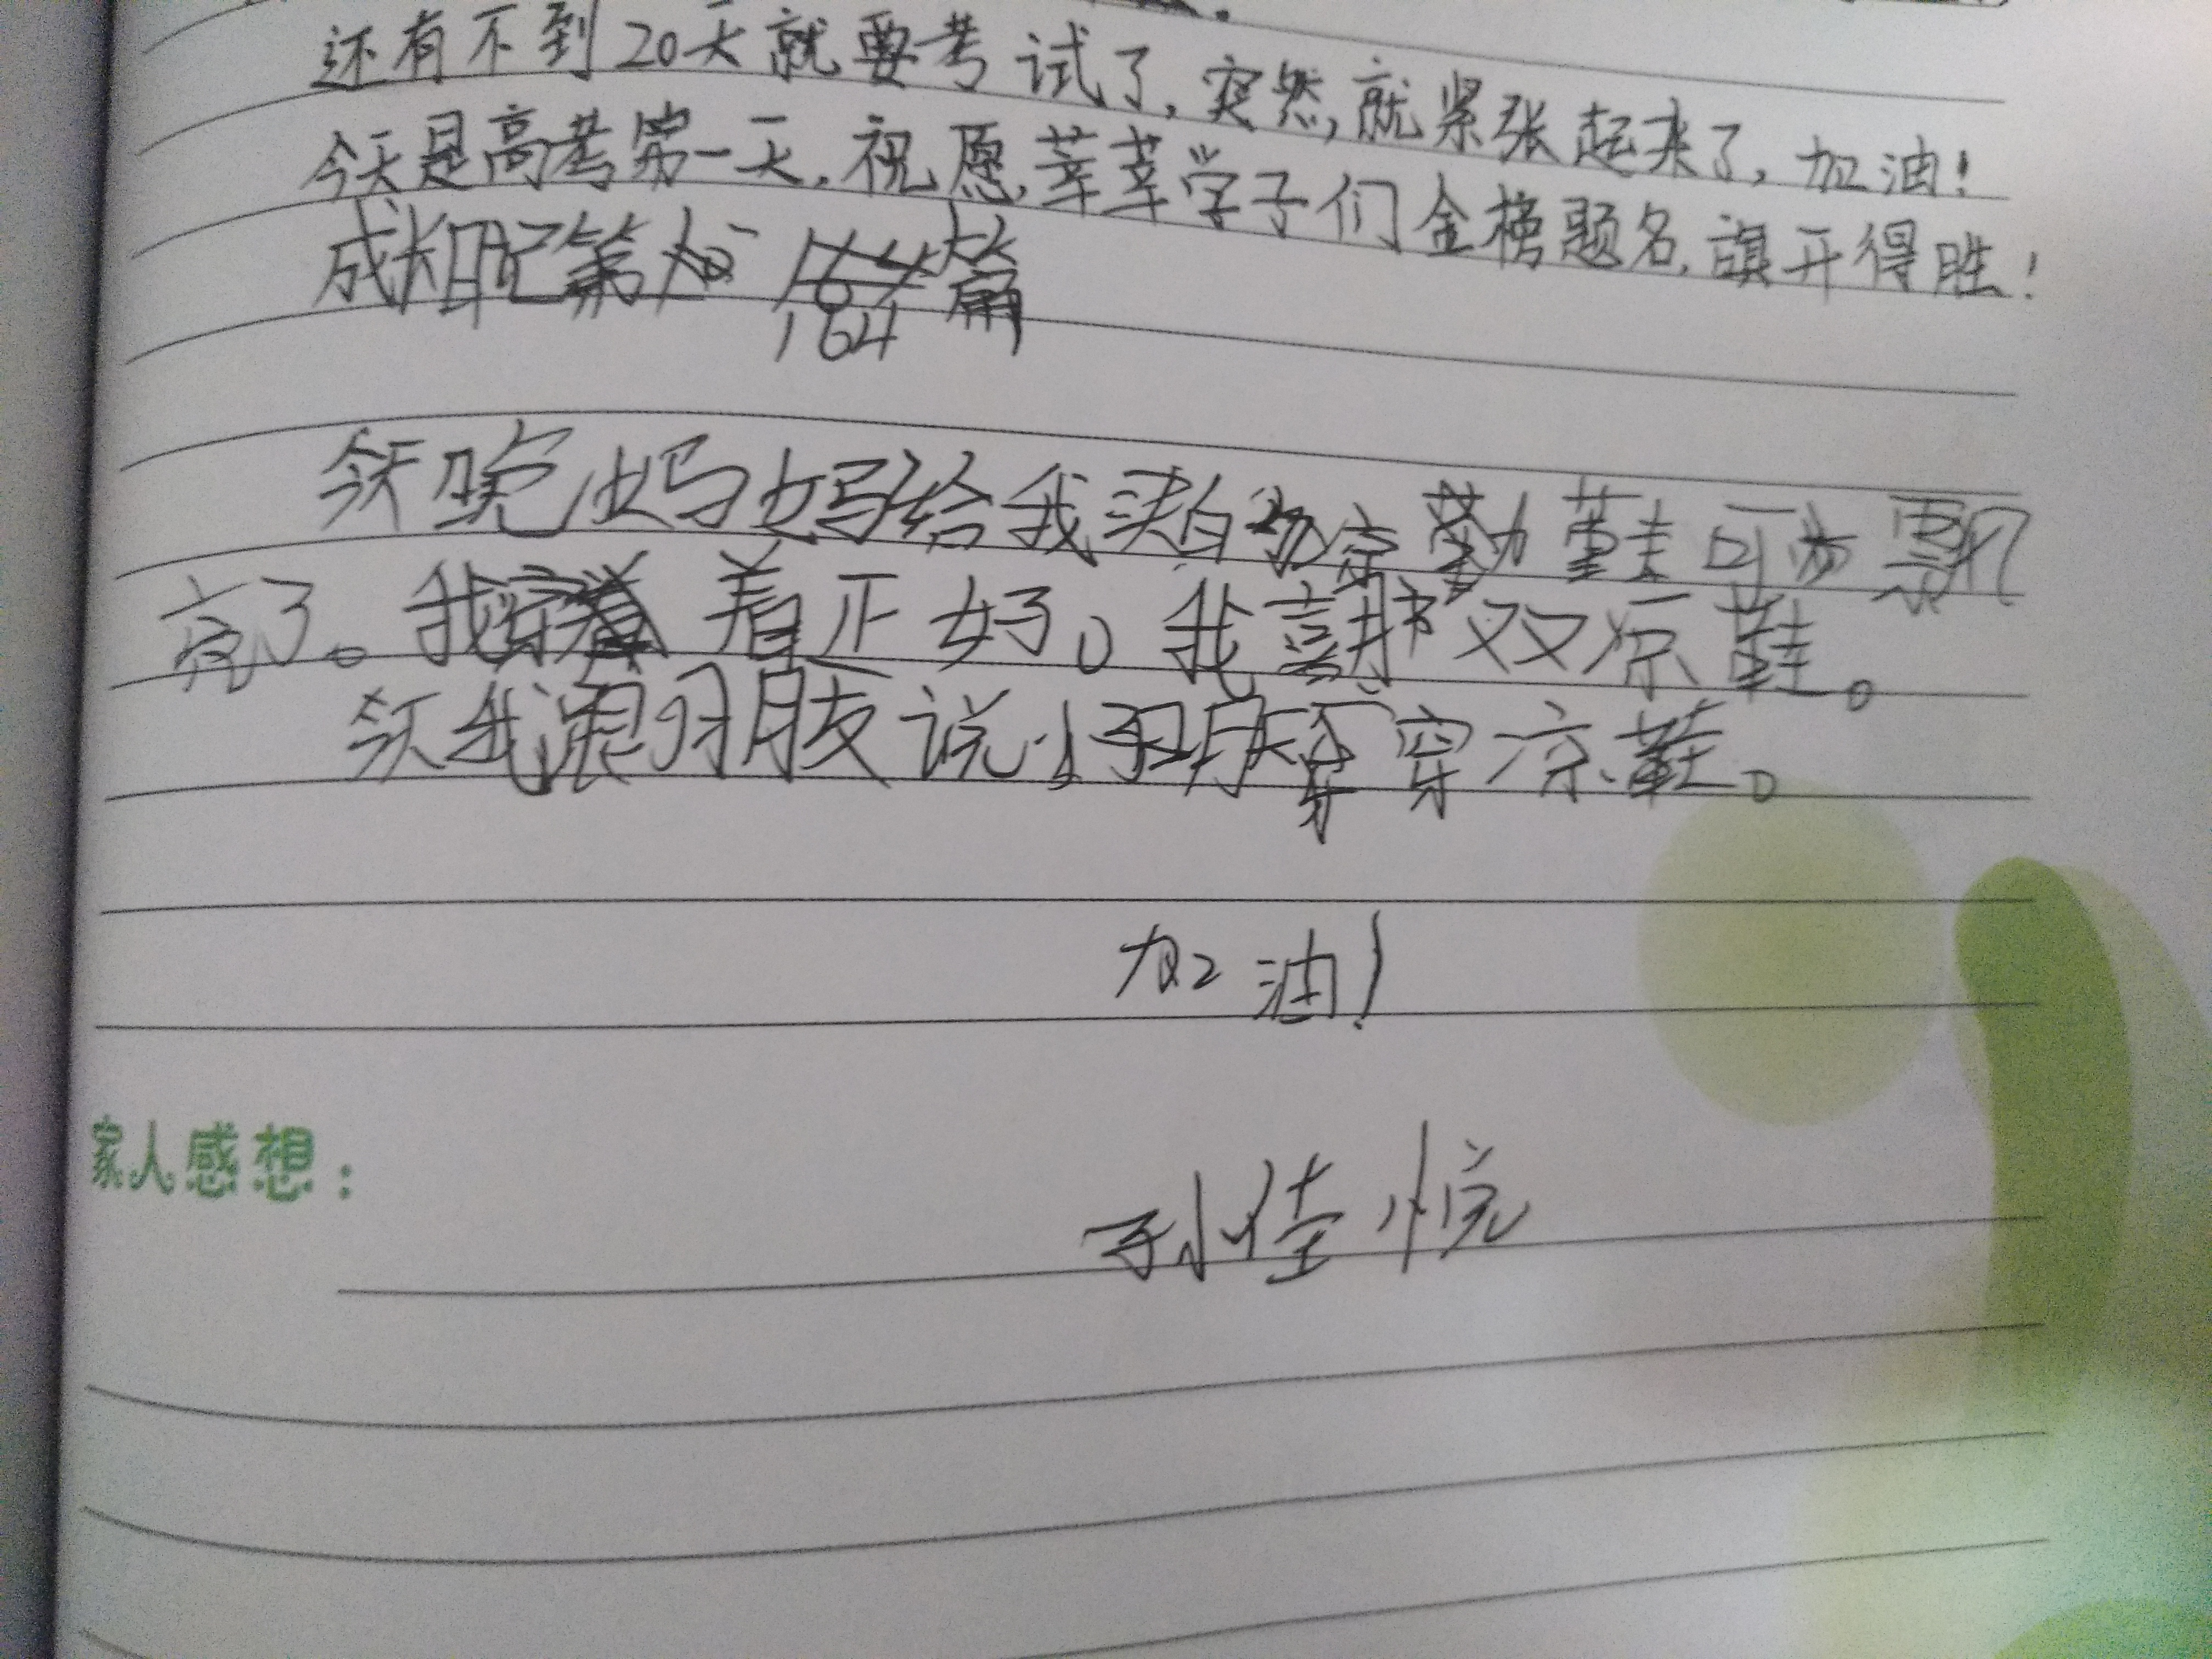 还有不到20天就要考试了,突然,就紧张起来了,加油!
今天是高考第一天,祝愿,莘莘学子们金榜题名,旗开得胜!
成长日记第164篇
今天晚妈妈给我买白勺凉鞋可漂
亮了。我穿着正好。我喜欢那双凉鞋。
今天我跟羽朋友说小羽朋天穿凉鞋。
加油!
家人感想:
孙佳悦